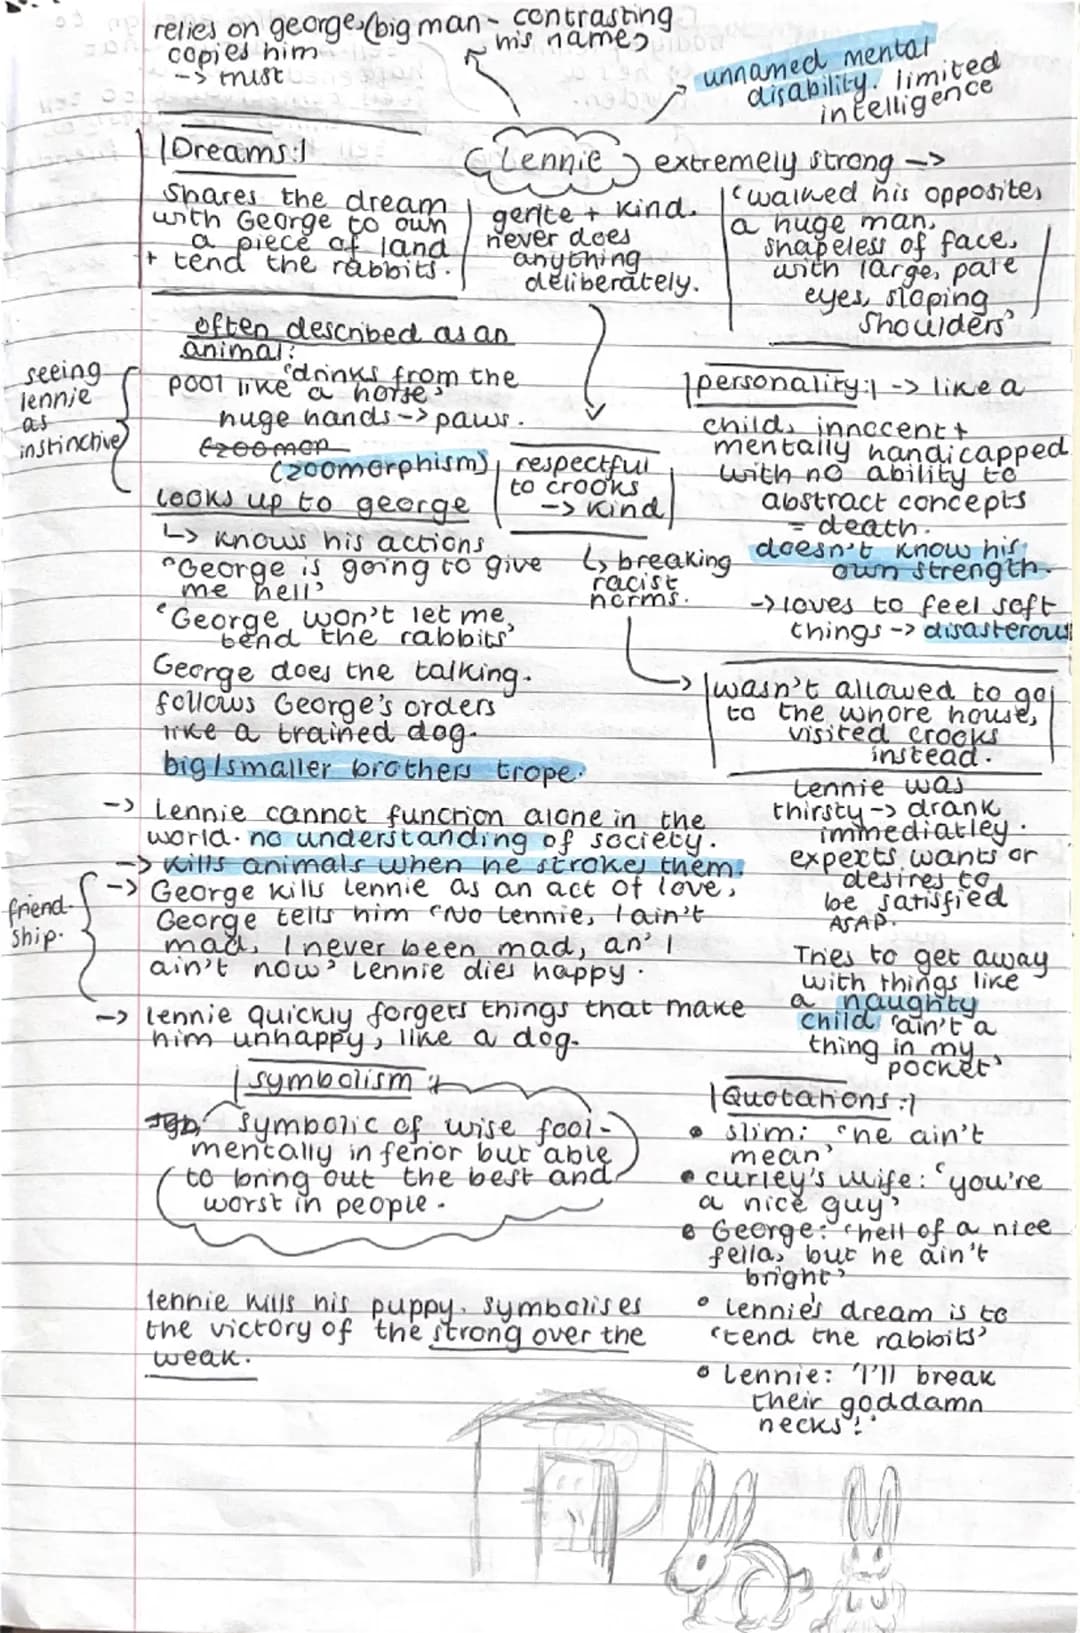 relies on george, (big man - contrasting
his name)
copies him
-> trust
unnamed mental
disability. limited
intelligence
|Dreams:|
Lennie
extremely strong ->
Shares the dream
with George to own
a piece of land
+ tend the rabbits.
gentle + kind.
never does
anything
deliberately.
'walked his opposite,
a huge man,
shapeless of face,
with large, pale
eyes, sloping
shoulders'
often described as an
animal:
'drinks from the
pool like a horse'
huge hands -> paws.
(zoomor
(zoomorphism)
seeing
lennie
as
instinctive
respectful
to crooks
-> kind
↳ breaking
racist
norms.
|personality:| -> like a
child, innocent +
mentally handicapped
with no ability to
abstract concepts
= death.
doesn't know his
own strength.
-> loves to feel soft
things -> disasterous
looks up to george
↳ knows his actions
"George is going to give
me hell'
'George won't let me,
tend the rabbits'
George does the talking.
follows George's orders
like a trained dog.
big/smaller brothers trope.
wasn't allowed to go
to the whore house,
visited crooks
instead.
-> Lennie cannot function alone in the
world. no understanding of society.
-> kills animals when he strokes them.
-> George kills Lennie as an act of love,
George tells him 'No Lennie, I ain't
mad, I never been mad, an' I
ain't now' Lennie dies happy.
friend-
ship.
-> lennie quickly forgets things that make
him unhappy, like a dog.
Lennie was
thirsty -> drank
immediatley.
expects wants or
desires to
be satisfied
ASAP.
Tries to get away
with things like
a naughty
child 'ain't a
thing in my
pocket'
|symbolism:|
symbolic of wise fool -
mentally inferior but able
to bring out the best and
worst in people.
lennie kills his puppy. symbolises
the victory of the strong over the
weak.
|Quotations:|
• slim: "he ain't
mean'
• curley's wife: 'you're
a nice guy'
• George: 'hell of a nice
fella, but he ain't
bright'
• Lennie's dream is to
'tend the rabbits'
• Lennie: 'I'll break
their goddamn
necks!'